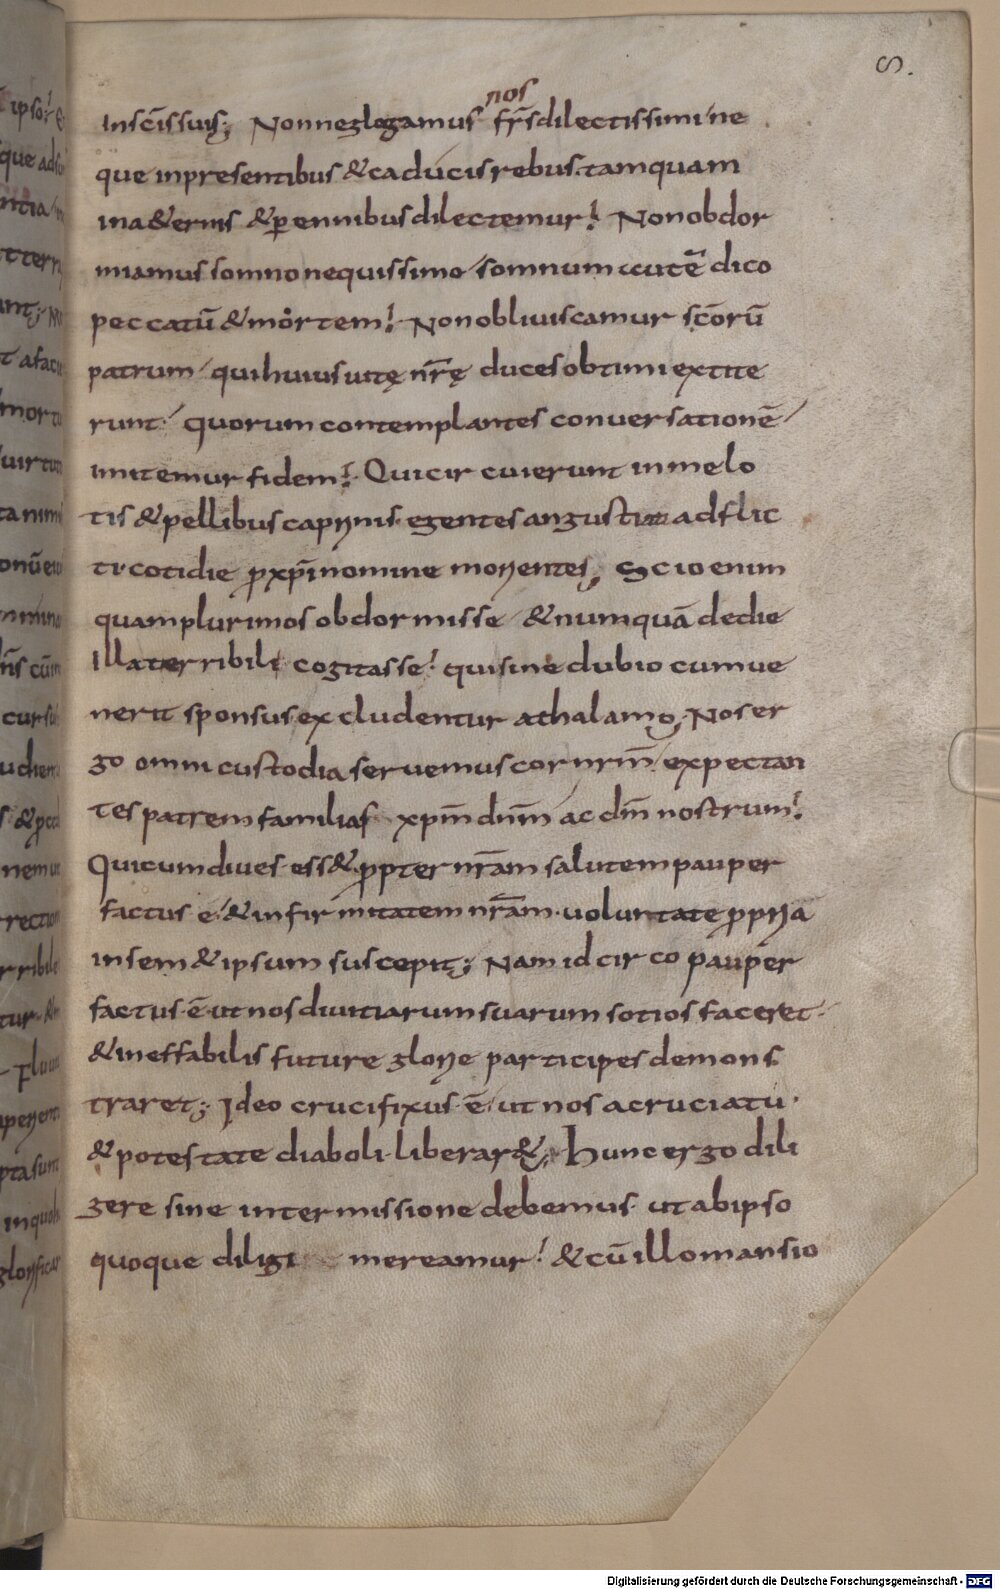 8.
nos
Insc̄is suis; Non neglegamus fr̄s dilectissimi ne
que inpresentibus & caducis rebus. tamquam
ina&ernis & p̄ennibus dilectemur! Non obdor
miamus somno nequissimo somnum autē dico
peccatū & mortem! Non obliviscamur sc̄orū
patrum qui huius uitę nr̄ę duces obtimi extite
runt. quorum contemplantes conuersationē
imitemur fidem! Qui circuierunt in melo
tis & pellibus caprinis. egentes angusti adflic
ti cotidie ꝓ xp̄i nomine morientes; Scio enim
quam plurimos obdormisse & numquā de die
illa terribili cogitasse! qui sine dubio cum ue
nerit sponsus excludentur a thalamo; Nos er
go omni custodia seruemus cor nrm̄ expectan
tes patrem familias xp̄m dn̄m ac dm̄ nostrum!
Qui cum dives ess& ꝓpter nr̄am salutem pauper
factus ē & infirmitatem nr̄am. uoluntate ꝓpria
in sem&ipsum suscepit; Nam idcirco pauper
factus ē ut nos diuitiarum suarum sotios faceret.
& ineffabilis future glorie participes demons
traret; Ideo crucifixus ē ut nos a cruciatu.
& potestate diaboli liberar&; Hunc ergo dili
gere sine intermissione debemus. ut ab ipso
quoque diligi mereamur! & cū illo mansio
Digitalisierung gefördert durch die Deutsche Forschungsgemeinschaft - DFG